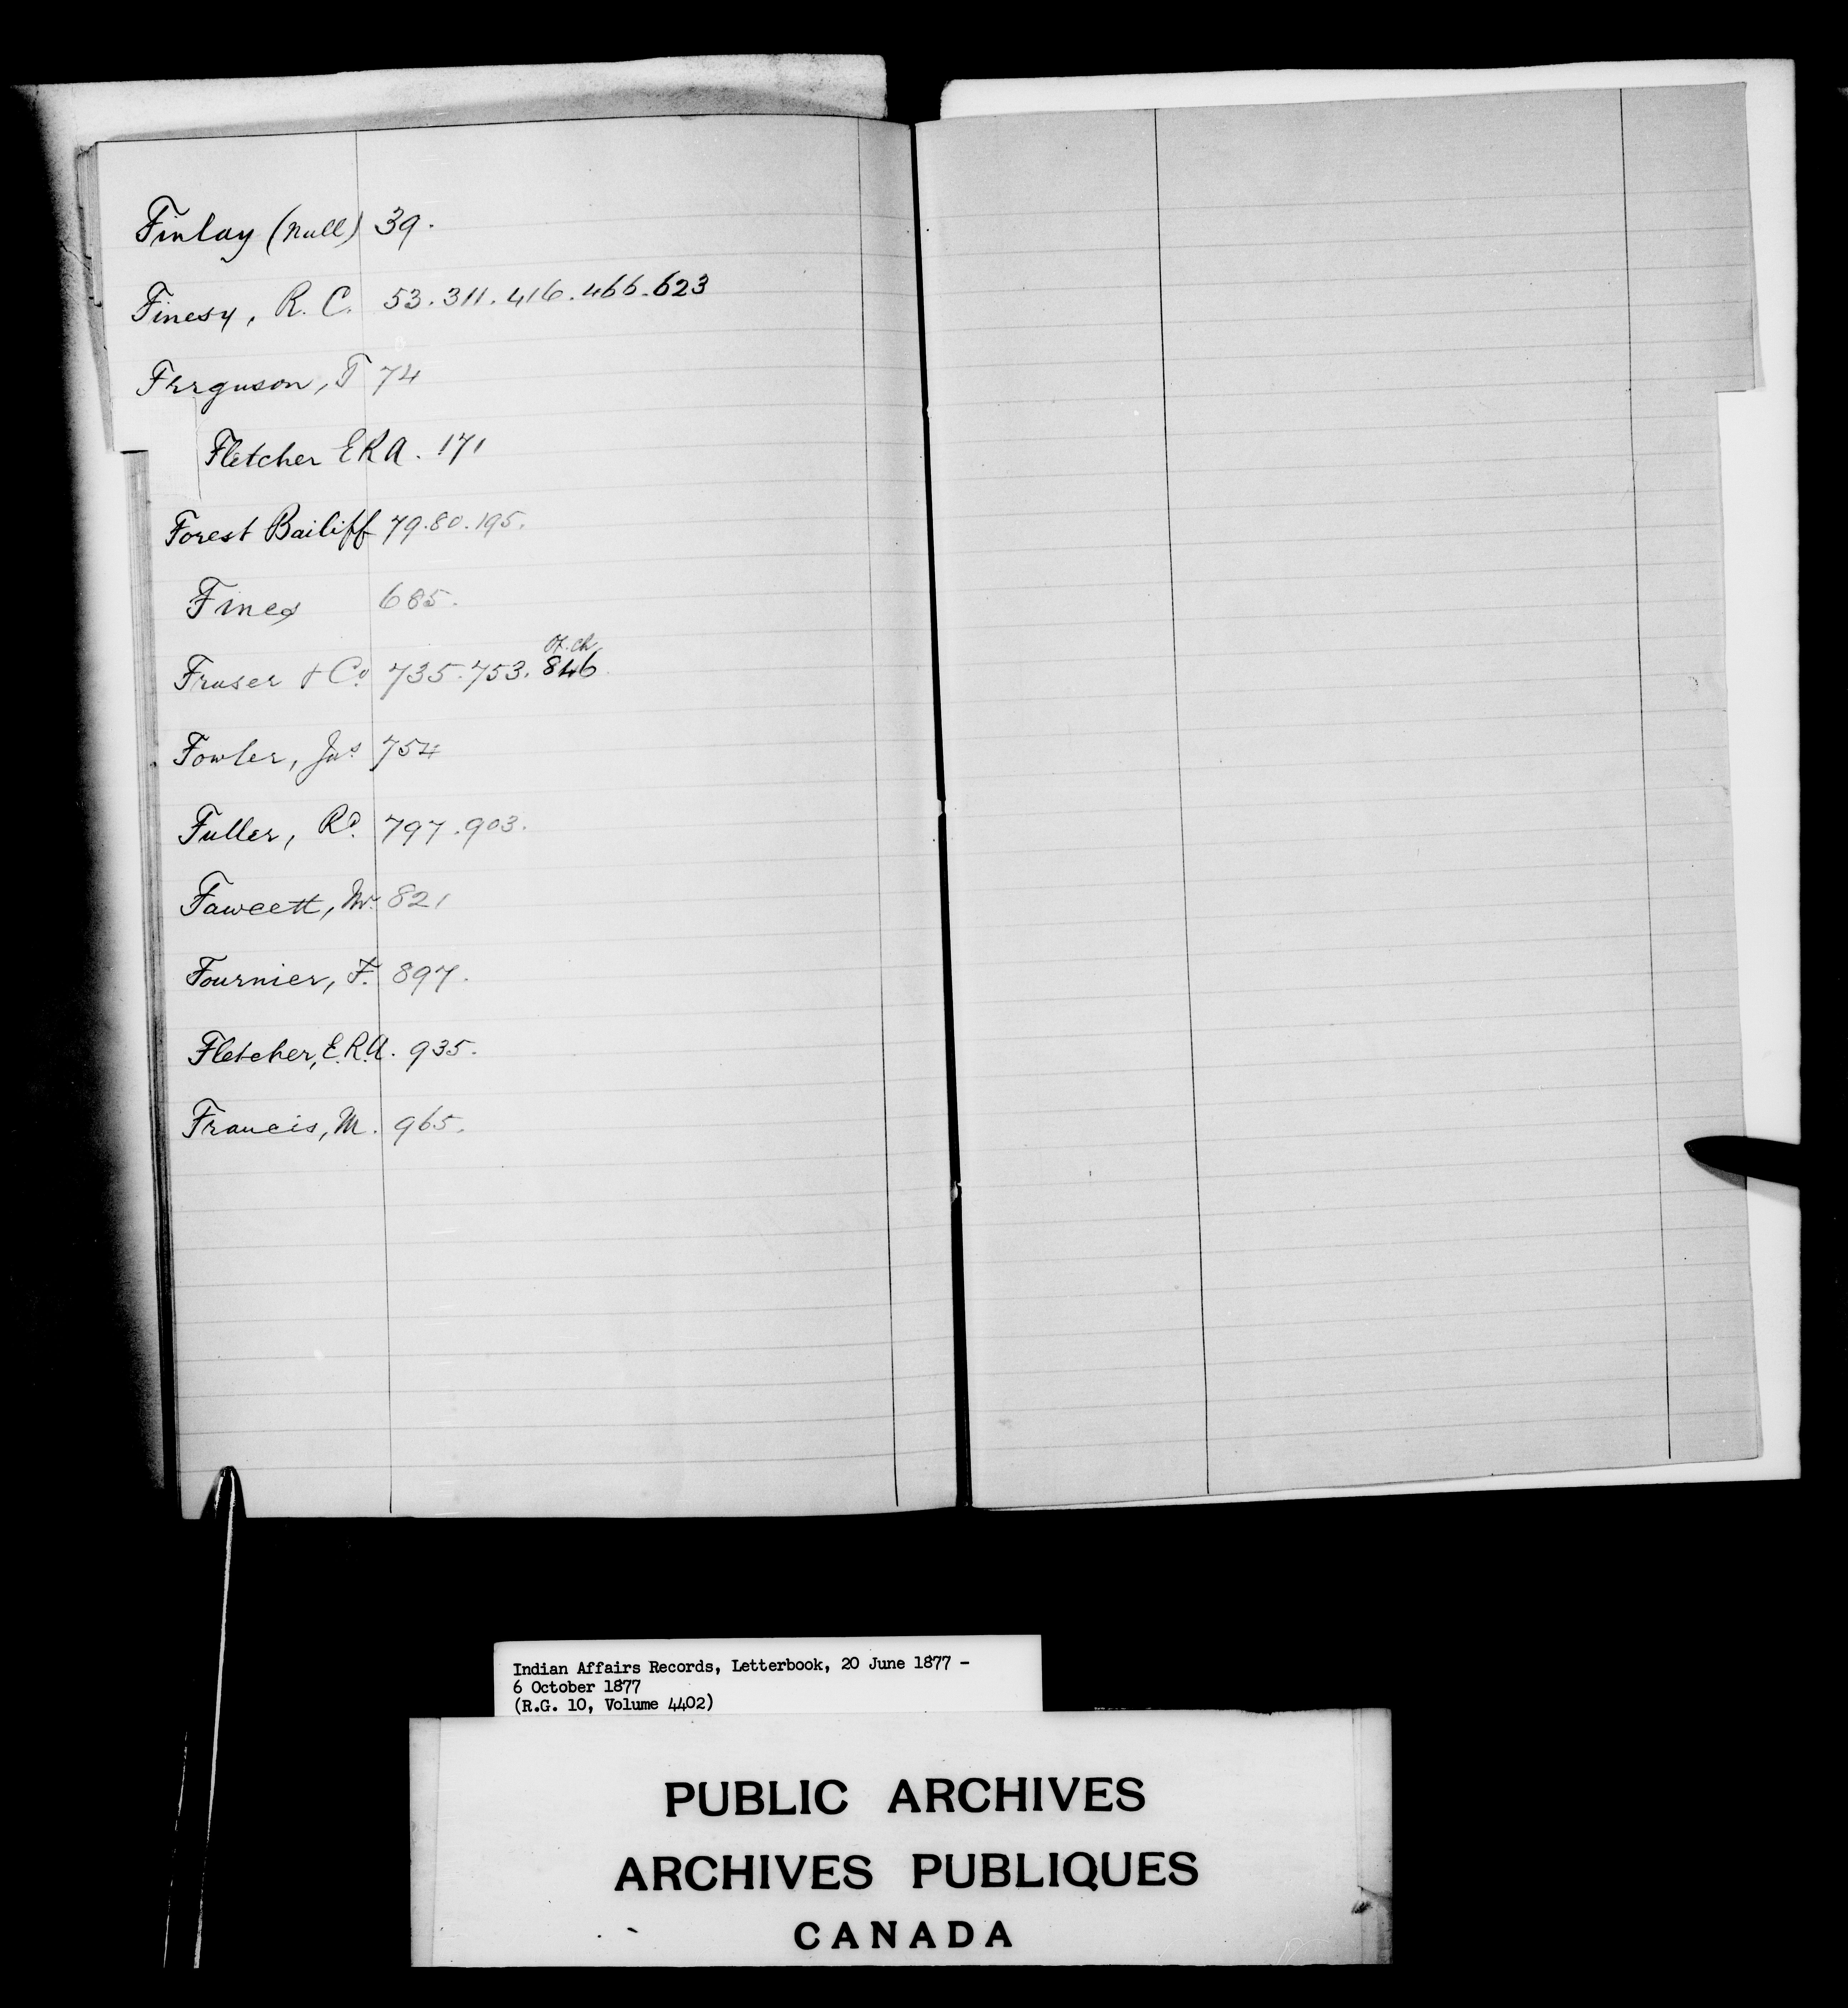 Finlay (Null) 39.
Finesy, R. C. 53. 311. 416. 466. 623
Ferguson, T 74
Fletcher E R A. 171
Forest Bailiff 79. 80. 195.
Fines 685.
Fraser & Co. 735. 753. 846
Fowler, Jas 754
Fuller, Rd. 797. 903.
Fawcett, Mr. 821
Fournier, F. 897.
Fletcher, E.R.A. 935.
Francis, M. 965.
Indian Affairs Records, Letterbook, 20 June 1877 -
6 October 1877
(R.G. 10, Volume 4402)
PUBLIC ARCHIVES
ARCHIVES PUBLIQUES
CANADA